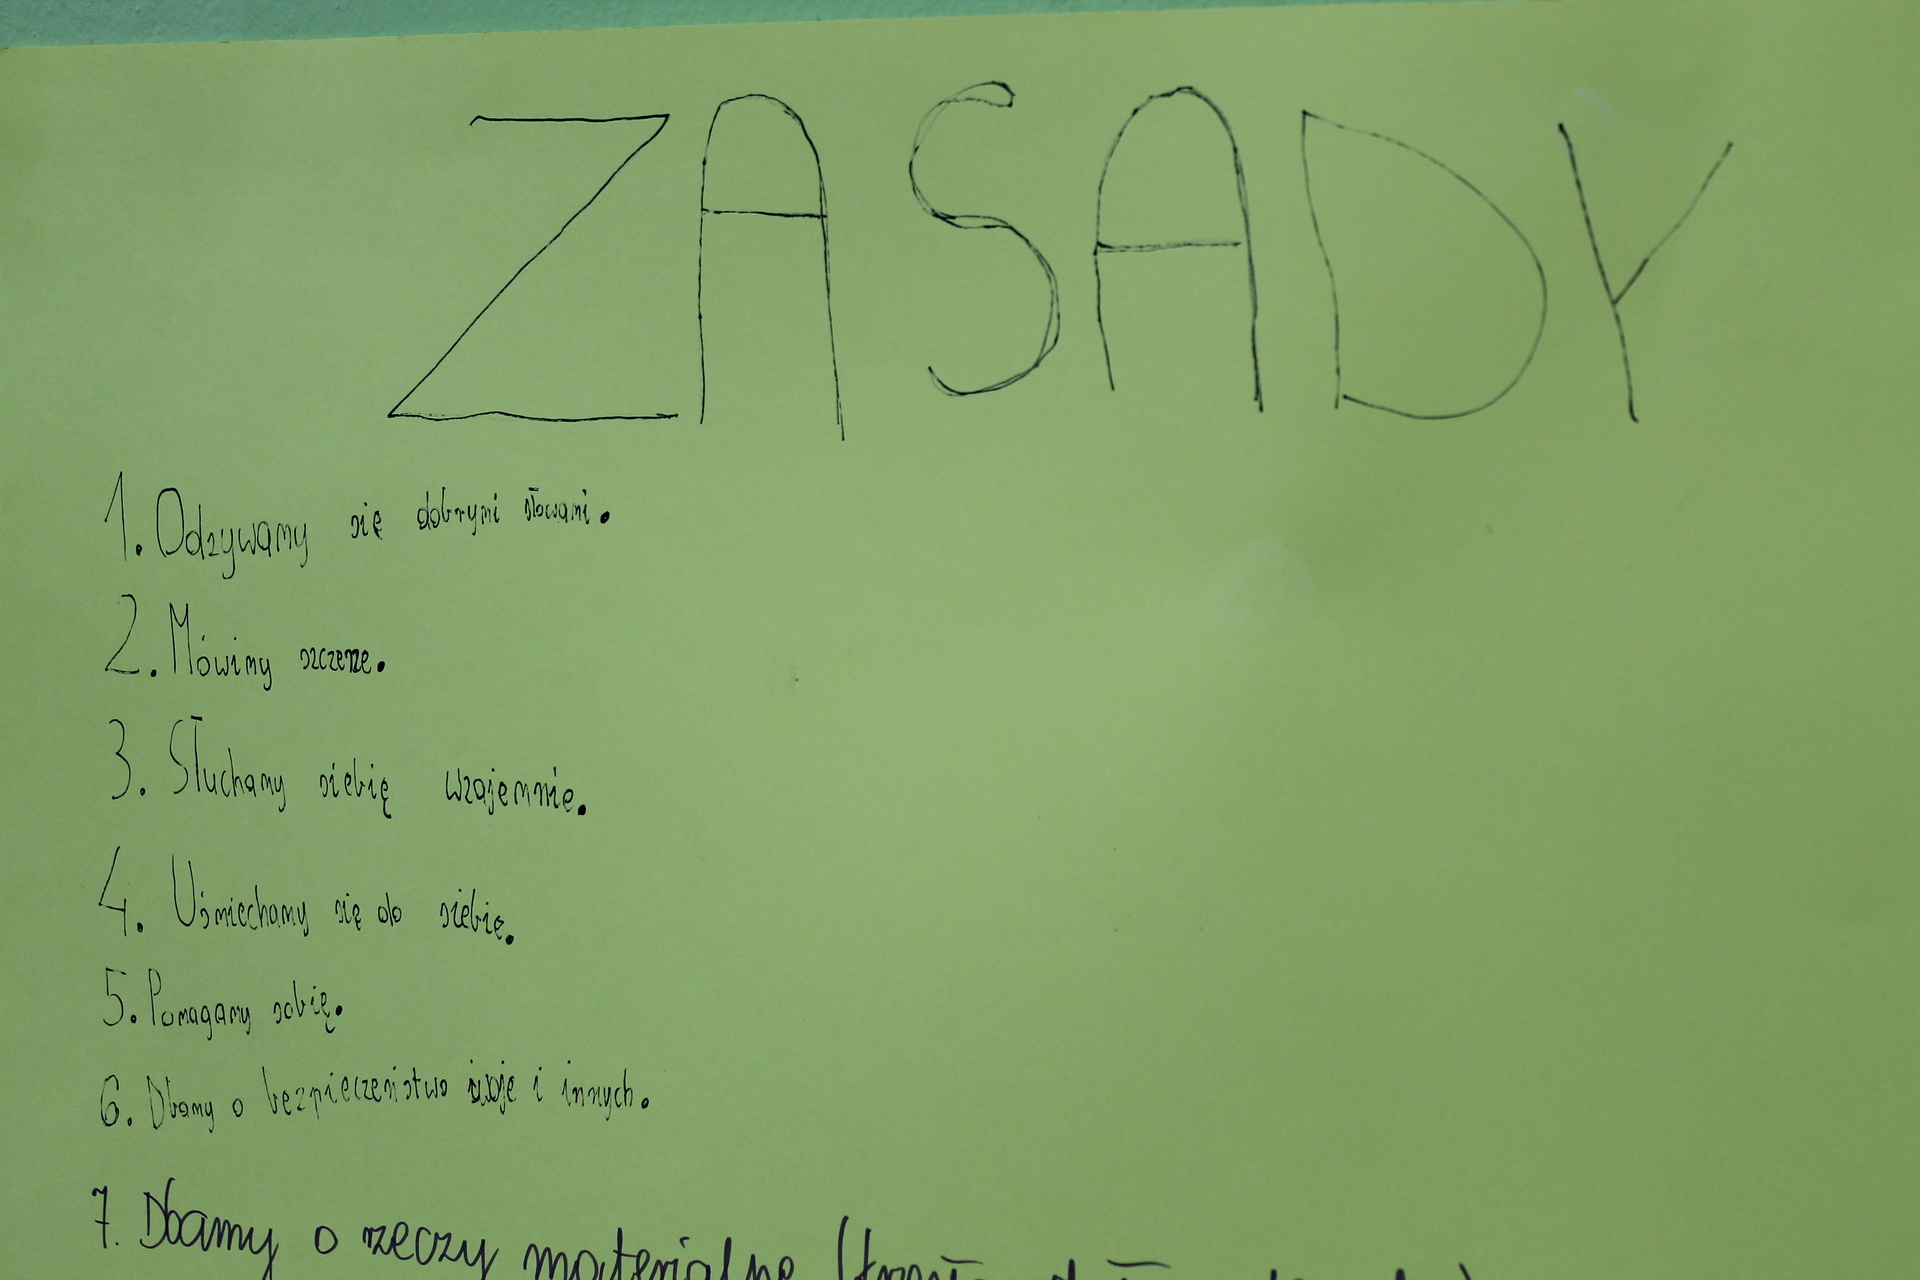 ZASADY
1. Odzywamy się dobrymi słowami.
2. Mówimy szczerze.
3. Słuchamy siebię wzajemnie.
4. Uśmiechamy się do siebię.
5. Pomagamy sobię.
6. Dbamy o bezpieczeństwo swoje i innych.
7. Dbamy o rzeczy materialne